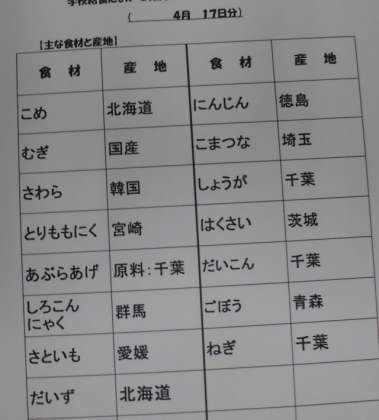 学校給食に
( 4月 17日分)
【主な食材と産地】
食 材 産 地 食 材 産 地
こめ 北海道 にんじん 徳島
むぎ 国産 こまつな 埼玉
さわら 韓国 しょうが 千葉
とりももにく 宮崎 はくさい 茨城
あぶらあげ 原料:千葉 だいこん 千葉
しろこん
にゃく 群馬 ごぼう 青森
さといも 愛媛 ねぎ 千葉
だいず 北海道